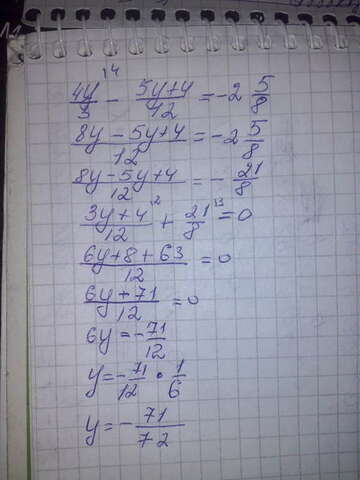 4y/3 ^14 - 5y+4/12 = -2 5/8
8y - 5y+4/12 = -2 5/8
8y-5y+4/12 = - 21/8
3y+4/12 ^12 + 21/8 ^13 = 0
6y+8+63/12 = 0
6y+71/12 = 0
6y = - 71/12
y = - 71/12 • 1/6
y = - 71/72